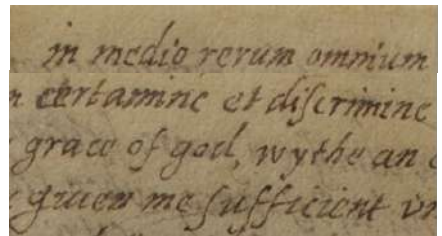 in medio rerum omnium
certamine et discrimine
grace of god, wythe an
giuen me sufficient vn